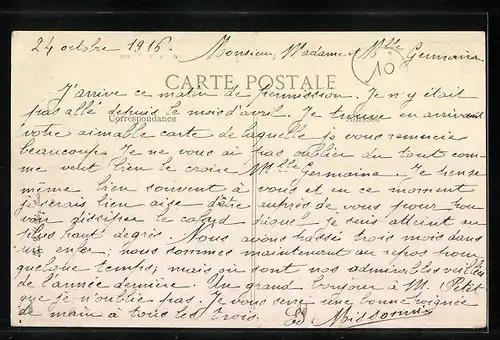 24 octobre 1916.
Monsieur, Madame et Mlle Germaine.
10
CARTE POSTALE
J'arrive ce matin de permission. Je n'y étais
pas allé depuis le mois d'avril. Je trouve en arrivant
Correspondance
votre aimable carte de laquelle je vous remercie
beaucoup. Je ne vous ai pas oublié du tout com-
me veut bien le croire Mlle Germaine. Je pense
même bien souvent à vous et en ce moment
je serais bien aise d'être auprès de vous pour pou
voir dissiper le cafard duquel je suis atteint au
plus haut degré. Nous avons passé trois mois dans
un enfer; nous sommes maintenant au repos pour
quelque temps; mais où sont nos admirables veillées
de l'année dernière. Un grand bonjour à M. Petit
que je n'oublie pas. Je vous serre une bonne poignée
de main à tous les trois.